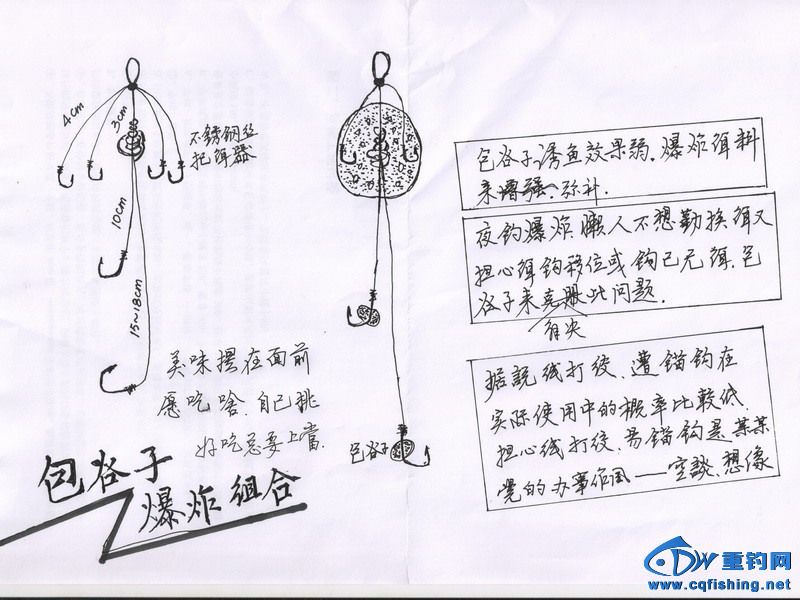 4cm
3cm
不锈钢丝
把饵器
10cm
15~18cm
美味摆在面前
愿吃啥.自己挑
好吃总要上當.
包谷子
爆炸组合
包谷子
包谷子诱鱼效果弱.爆炸饵料
来增强.弥补.
夜钓爆炸懒人不想勤换饵又
担心饵钩移位或钩已无饵.包
谷子来克服此问题.
据説线打绞、遭锚钩在
实际使用中的概率比较低.
担心线打绞、易锚钩是某某
党的办事作风——空谈、想像
重钓网
www.cqfishing.net